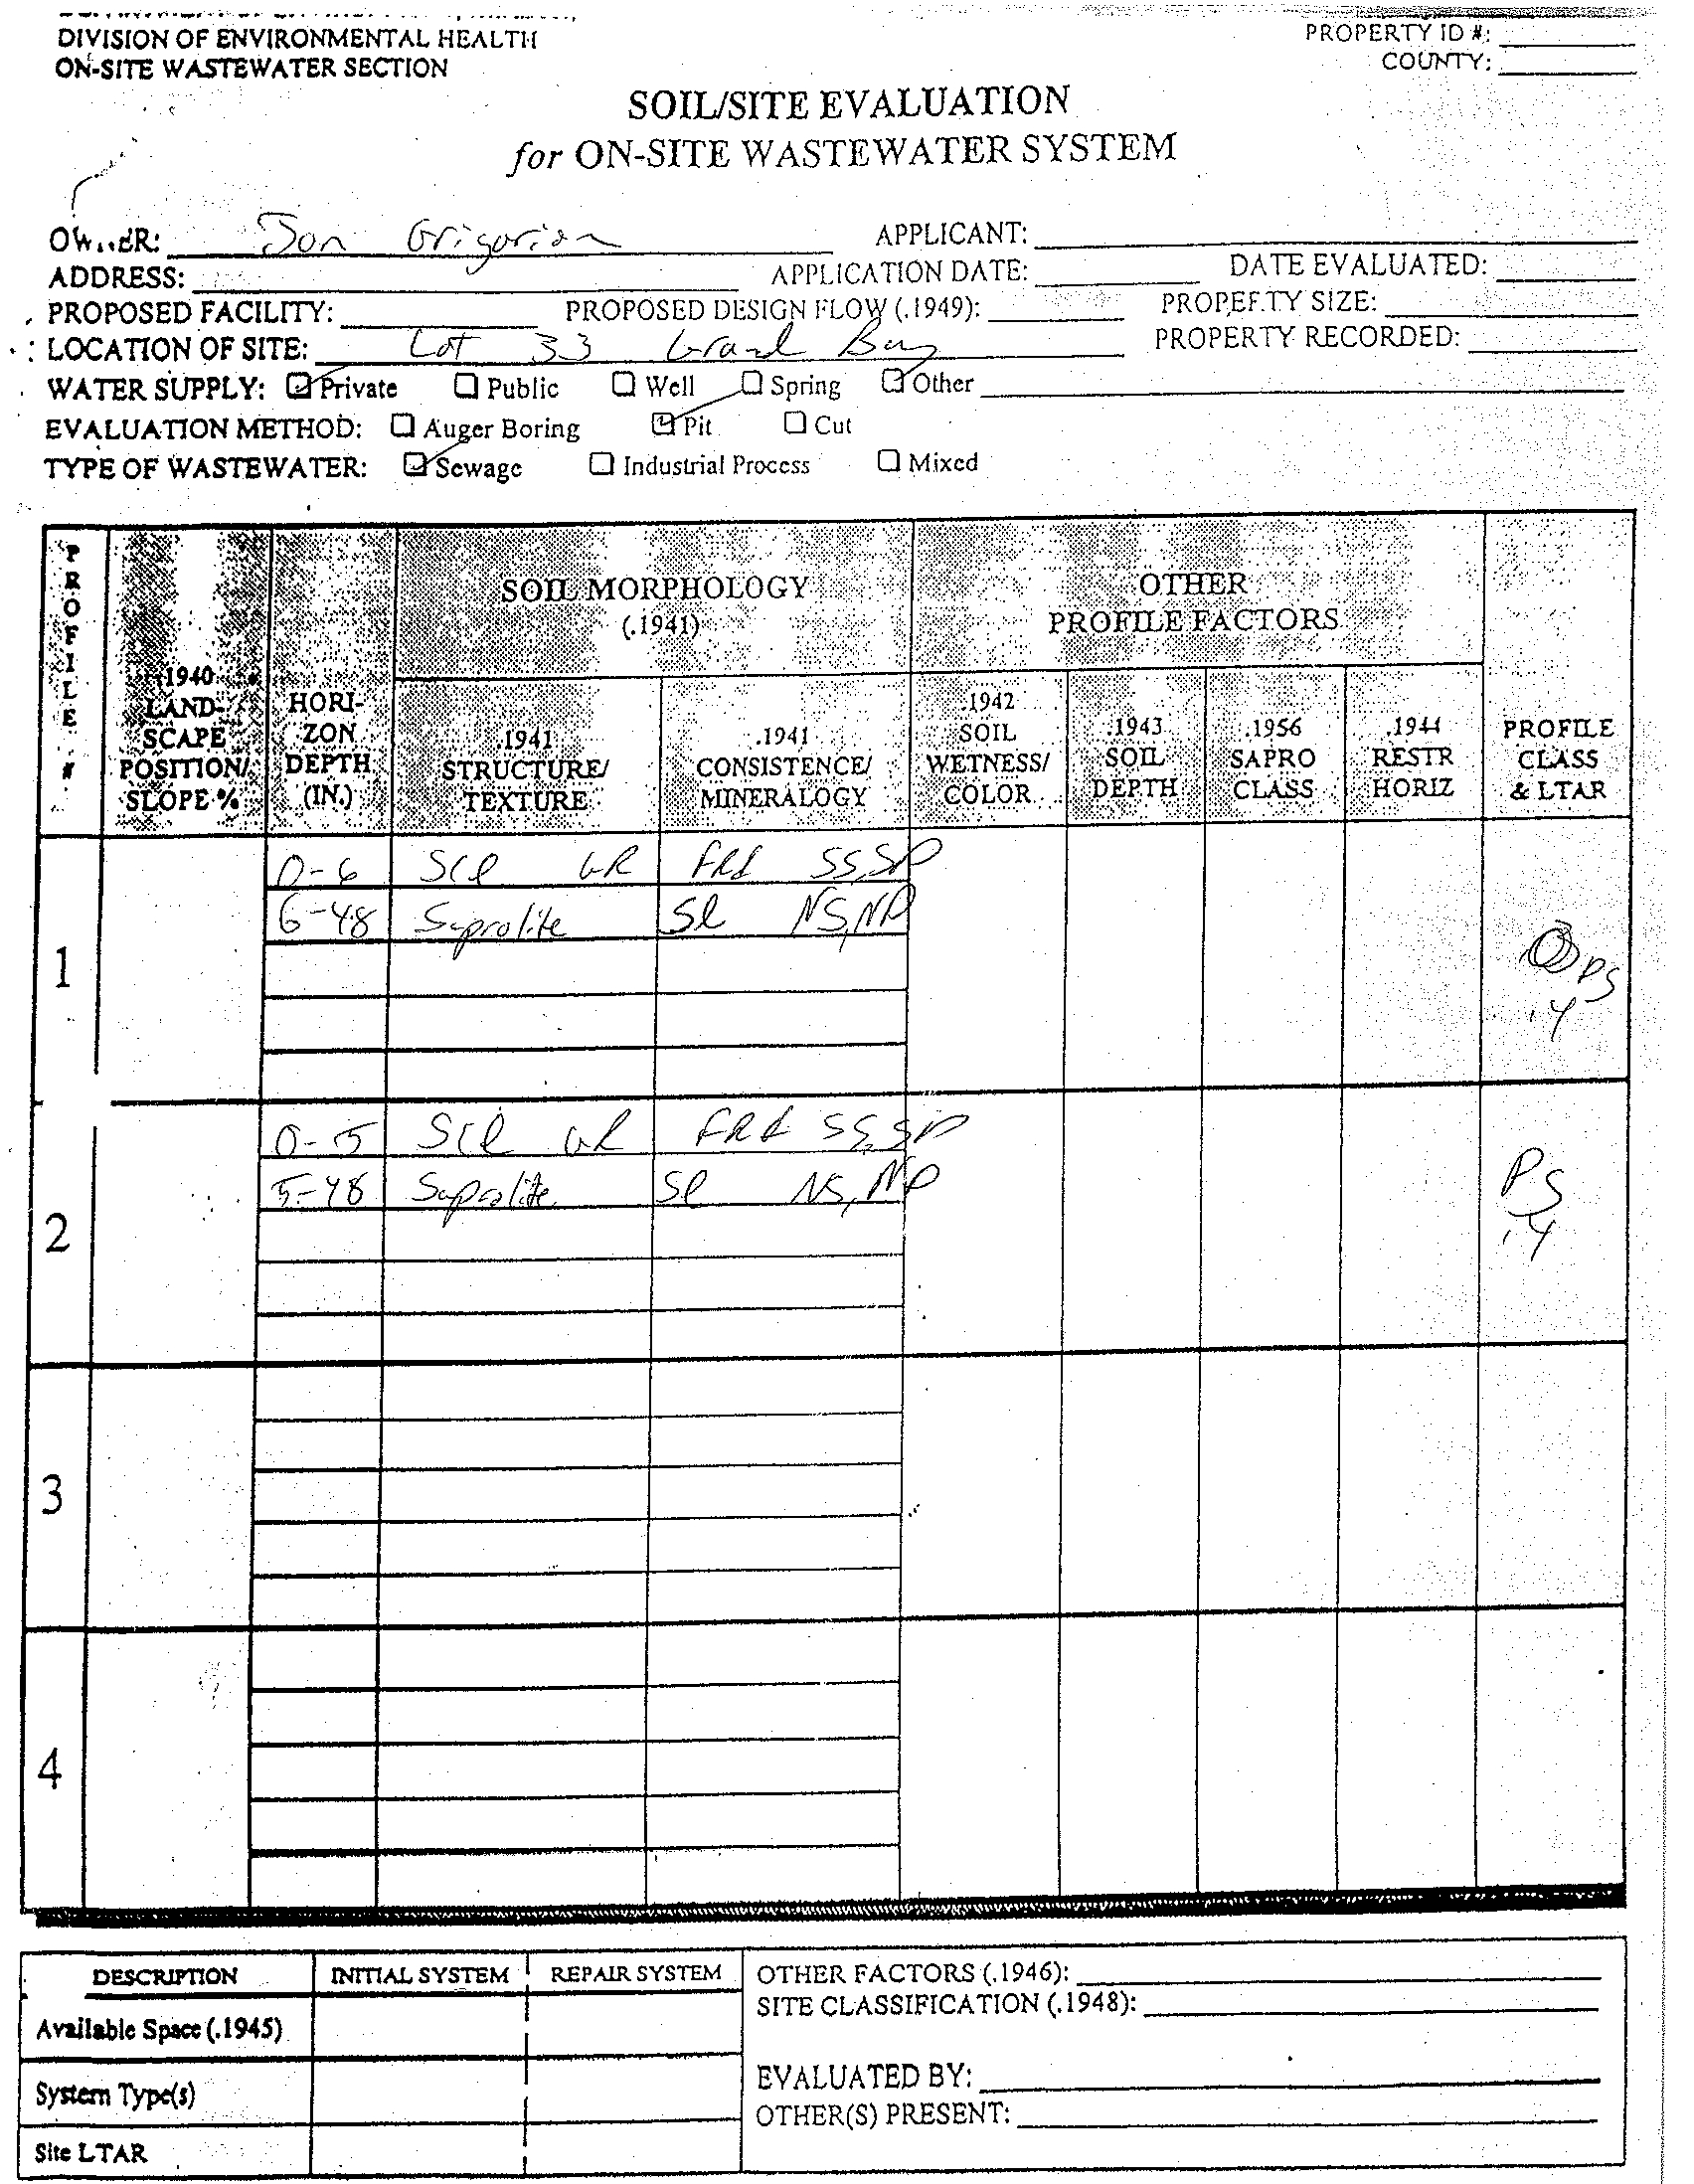 DIVISION OF ENVIRONMENTAL HEALTH
ON-SITE WASTEWATER SECTION
PROPERTY ID #:
COUNTY:
SOIL/SITE EVALUATION
for ON-SITE WASTEWATER SYSTEM
OWNER: Jon Grigorian APPLICANT:
ADDRESS: APPLICATION DATE: DATE EVALUATED:
PROPOSED FACILITY: PROPOSED DESIGN FLOW (.1949): PROPERTY SIZE:
LOCATION OF SITE: Lot 33 Grand Bay PROPERTY RECORDED:
WATER SUPPLY: ☑ Private ☐ Public ☐ Well ☐ Spring ☑ Other
EVALUATION METHOD: ☐ Auger Boring ☑ Pit ☐ Cut
TYPE OF WASTEWATER: ☑ Sewage ☐ Industrial Process ☐ Mixed
PROFILE #
.1940 LAND-SCAPE POSITION/ SLOPE %
HORI-ZON DEPTH (IN.)
SOIL MORPHOLOGY (.1941)
.1941 STRUCTURE/ TEXTURE
.1941 CONSISTENCE/ MINERALOGY
OTHER PROFILE FACTORS
.1942 SOIL WETNESS/ COLOR
.1943 SOIL DEPTH
.1956 SAPRO CLASS
.1944 RESTR HORIZ
PROFILE CLASS & LTAR
1
0-6 SCl GR FRI SS,SP
6-48 Saprolite Sl NS,NP
PS
.4
2
0-5 SCl GR FRI SS,SP
5-48 Saprolite Sl NS,NP
PS
.4
3
4
DESCRIPTION INITIAL SYSTEM REPAIR SYSTEM
Available Space (.1945)
System Type(s)
Site LTAR
OTHER FACTORS (.1946):
SITE CLASSIFICATION (.1948):
EVALUATED BY:
OTHER(S) PRESENT: